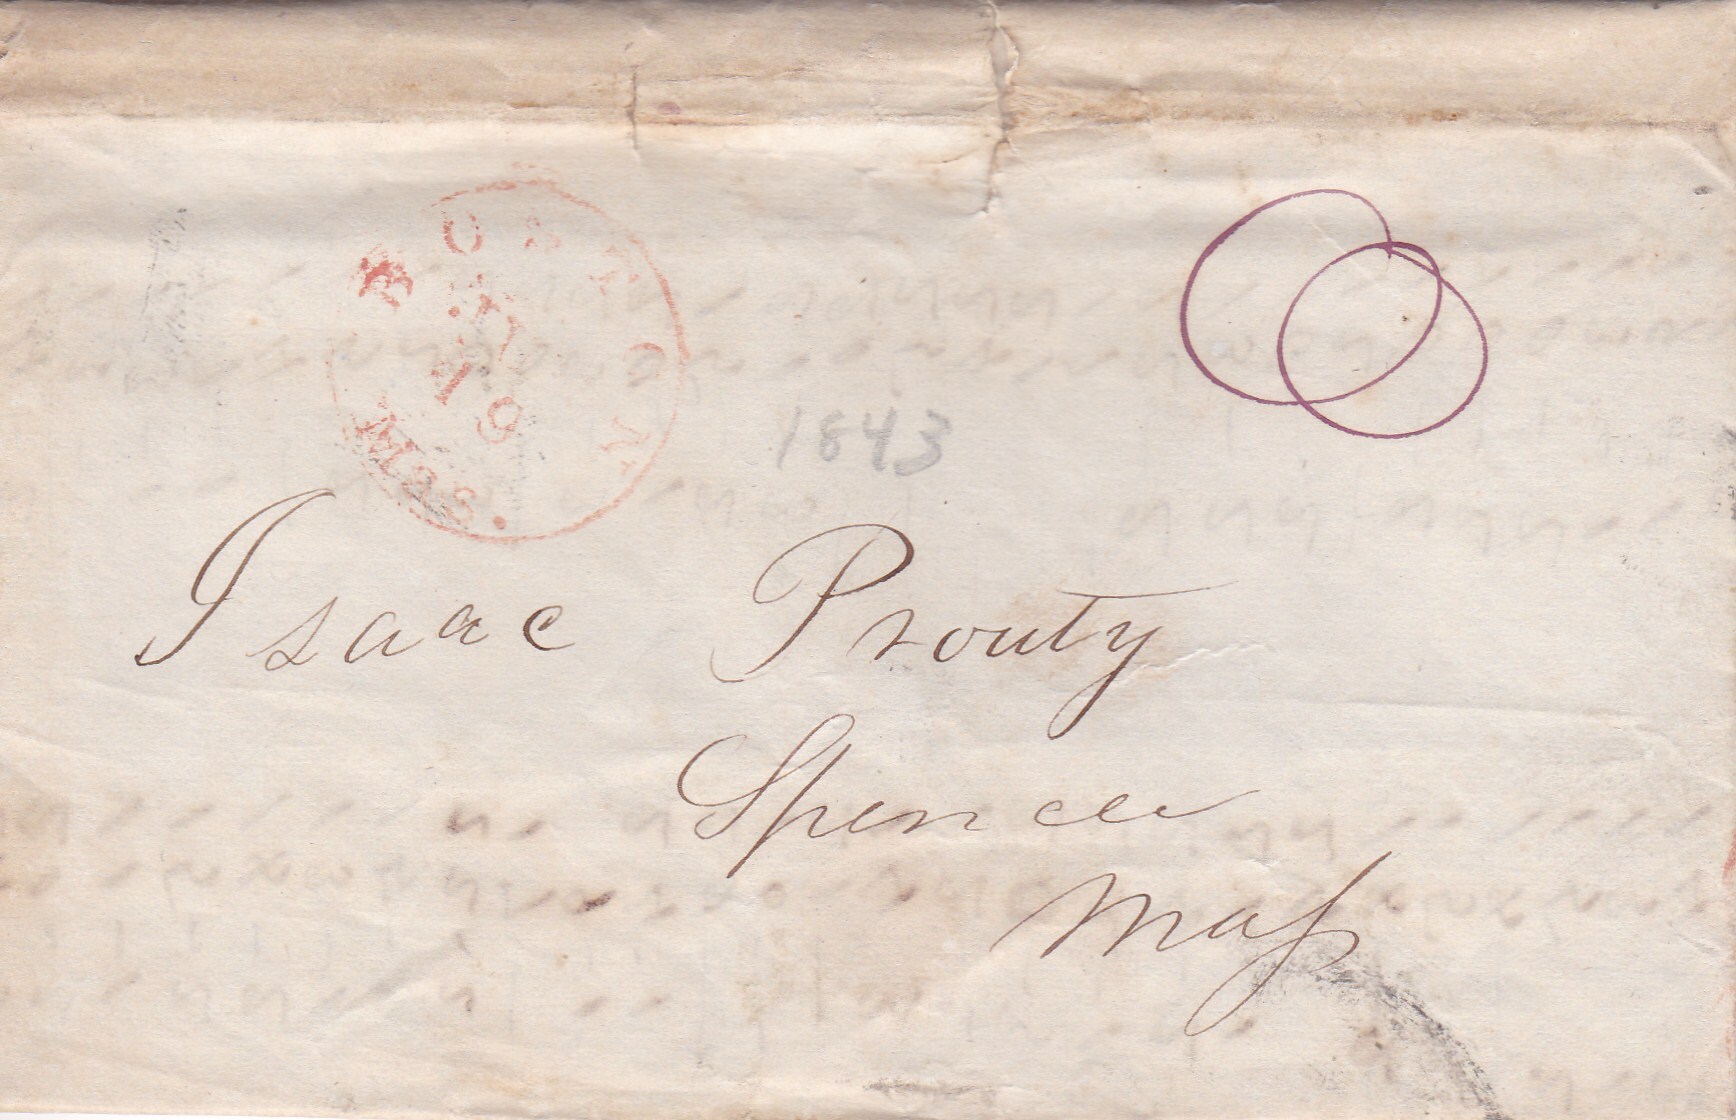 BOSTON
19
Mas.
1843
Isaac Prouty
Spencer
Mass